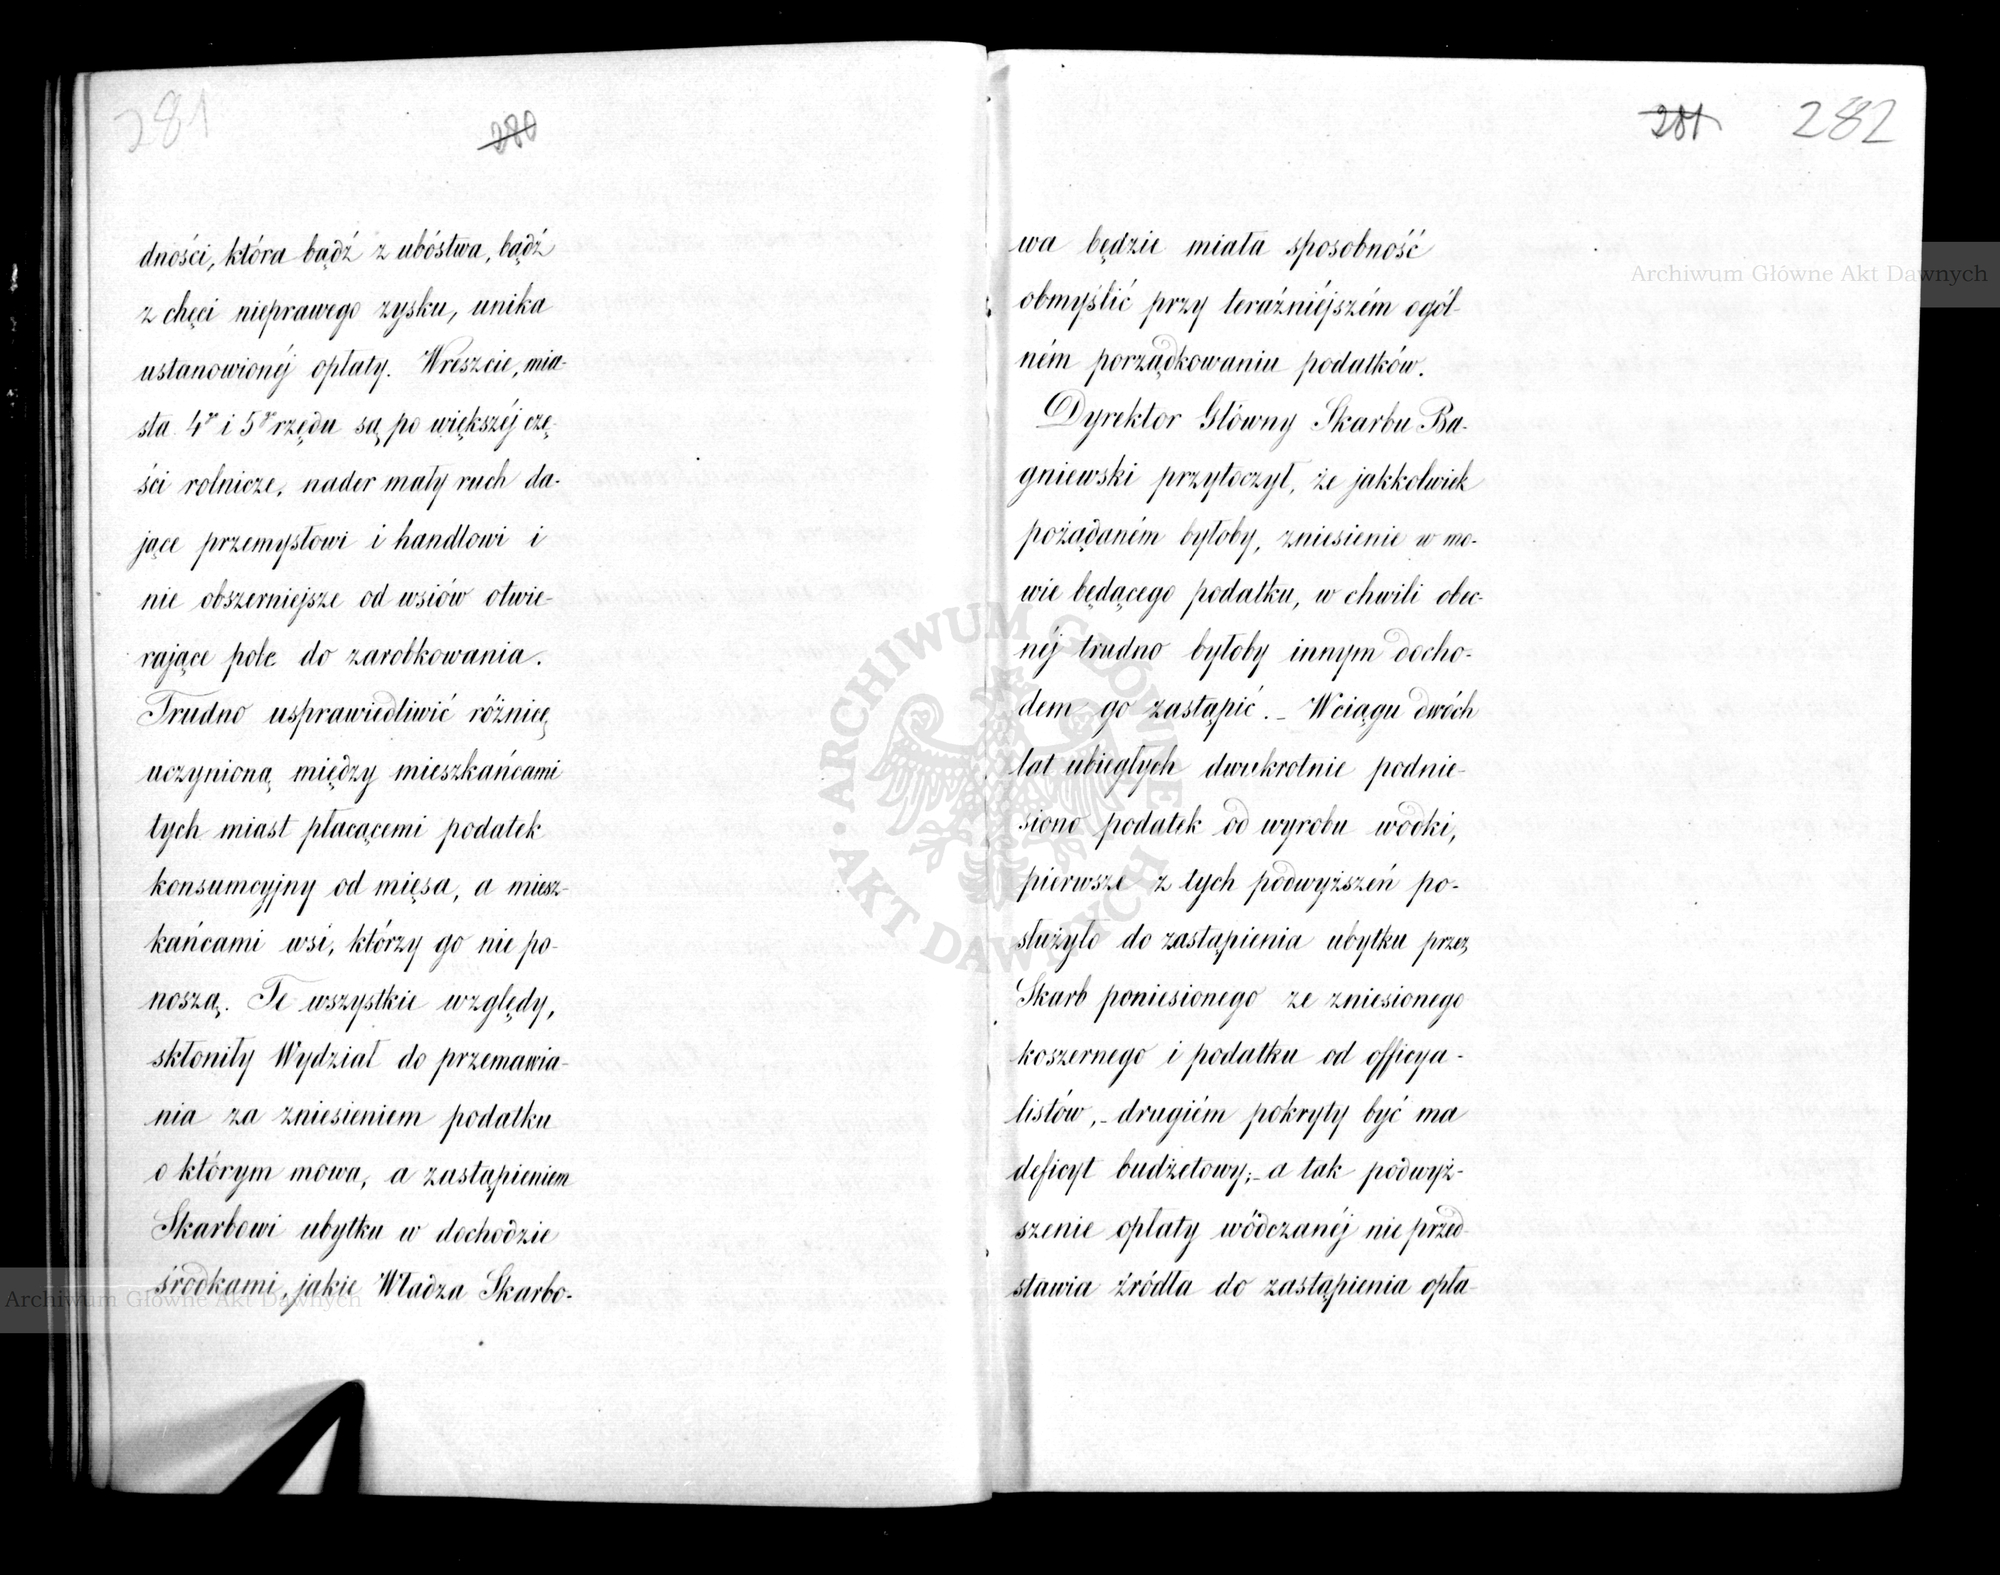 281
280
dności, która bądź z ubóstwa, bądź
z chęci nieprawego zysku, unika
ustanowionéj opłaty. Wreszcie, mia-
sta 4go i 5go rzędu są po większéj czę-
ści rolnicze, nader mały ruch da-
jące przemysłowi i handlowi i
nie obszerniejsze od wsiów otwie-
rające pole do zarobkowania.
Trudno usprawiedliwić różnicę
uczynioną między mieszkańcami
tych miast płacącemi podatek
konsumcyjny od mięsa, a miesz-
kańcami wsi, którzy go nie po-
noszą. Te wszystkie względy,
skłoniły Wydział do przemawia-
nia za zniesieniem podatku
o którym mowa, a zastąpieniem
Skarbowi ubytku w dochodzie
środkami, jakie Władza Skarbo-
281
282
wa będzie miała sposobność
obmyślić przy teraźniéjszém ogól-
ném porządkowaniu podatków.
Dyrektor Główny Skarbu Ba-
gniewski przytoczył, że jakkolwiek
pożądaném byłoby, zniesienie w mo-
wie będącego podatku, w chwili obec-
néj trudno byłoby innym docho-
dem go zastąpić. _ W ciągu dwóch
lat ubiegłych dwukrotnie podnie-
siono podatek od wyrobu wódki,
pierwsze z tych podwyższeń po-
służyło do zastąpienia ubytku przez
Skarb poniesionego ze zniesionego
koszernego i podatku od officya-
listów, _ drugiém pokryty być ma
deficyt budżetowy; _ a tak podwyż-
szenie opłaty wódczanéj nie przed-
stawia źródła do zastąpienia opła-
Archiwum Główne Akt Dawnych
Archiwum Główne Akt Dawnych
ARCHIWUM GŁÓWNE AKT DAWNYCH